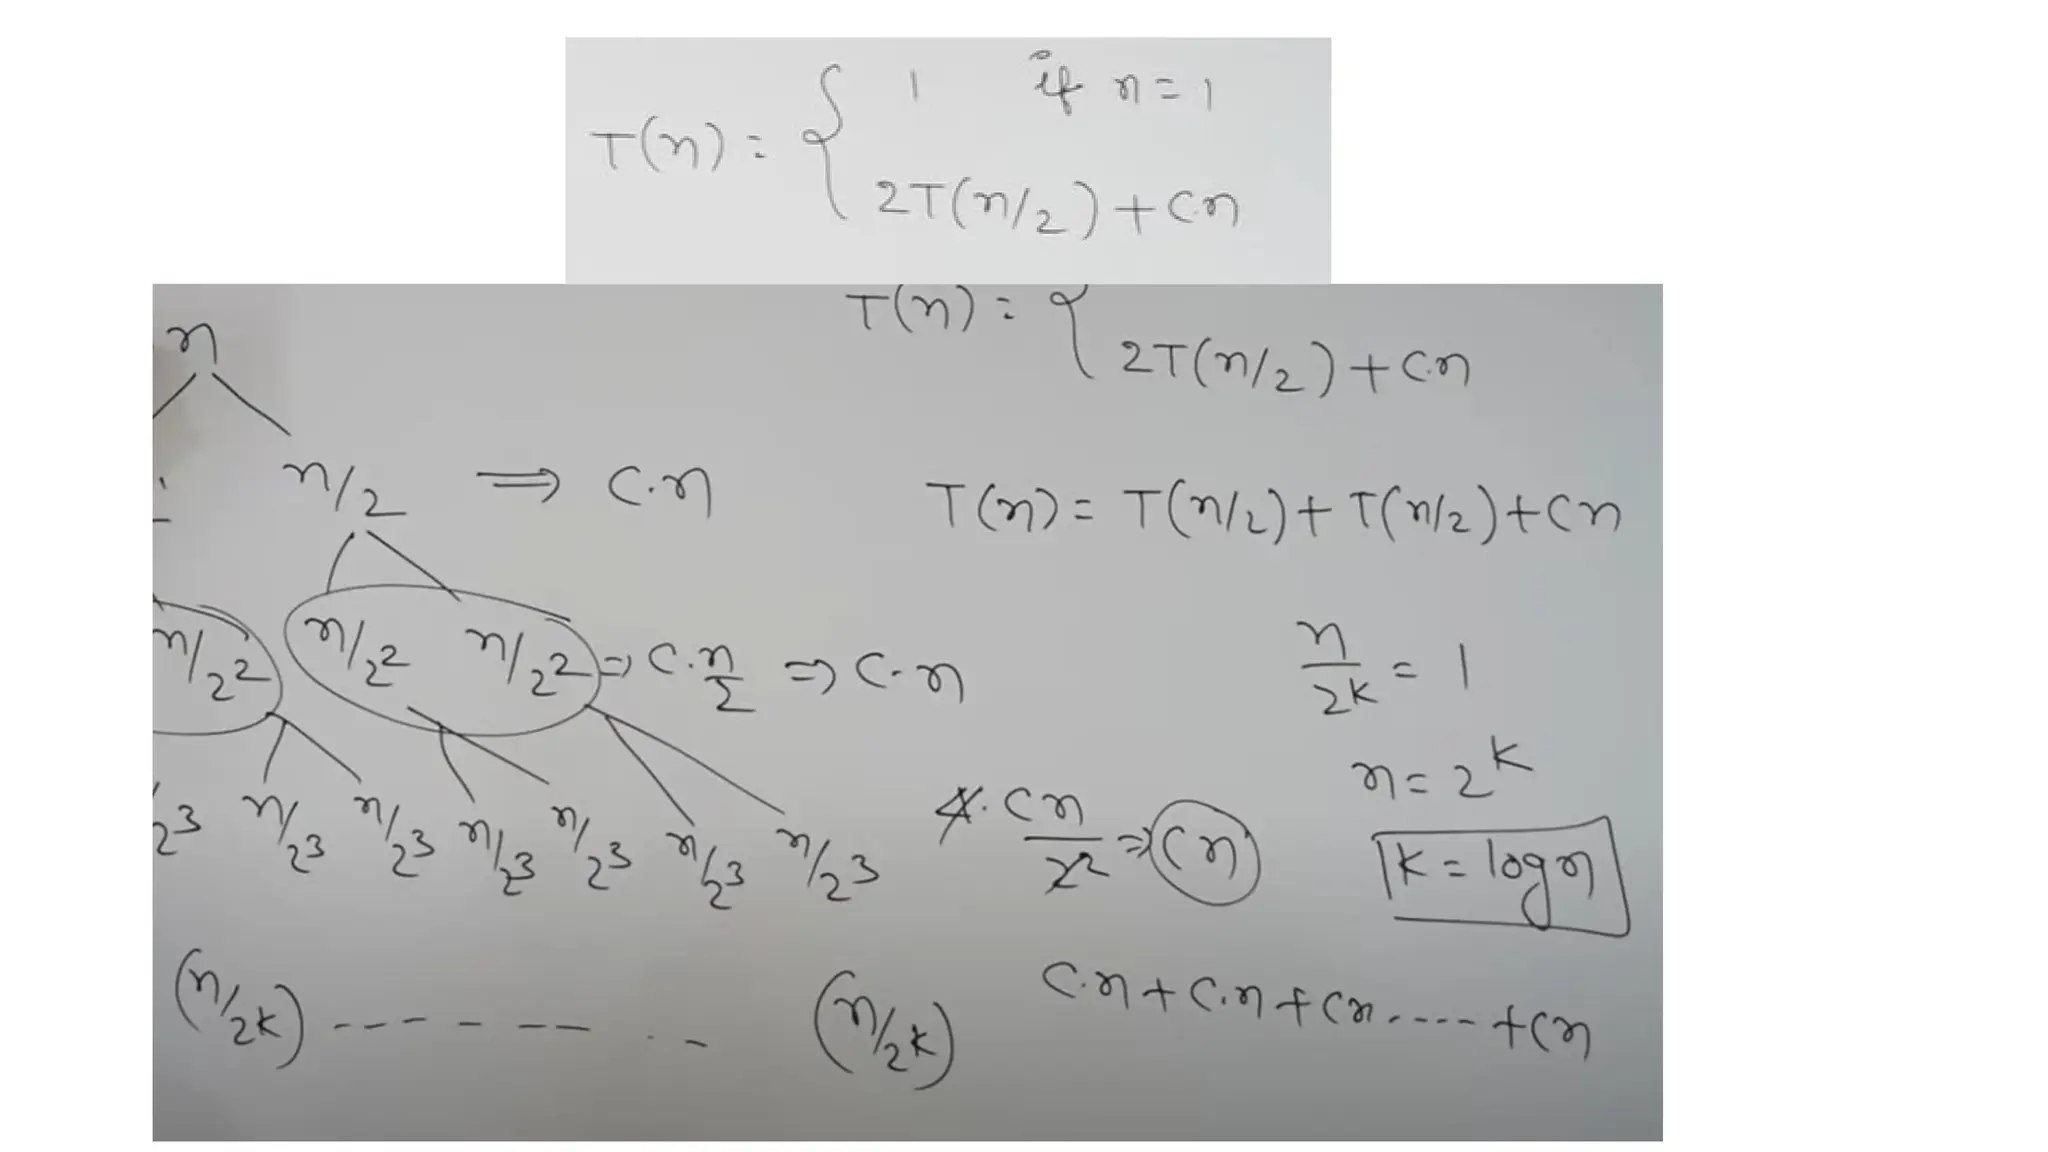 T(n) = { 1 if n = 1
2T(n/2) + c.n
T(n) = {
2T(n/2) + c.n
n
n/2 ⇒ c.n
T(n) = T(n/2) + T(n/2) + cn
n/2² n/2² n/2² ⇒ c.n/2 ⇒ c.n
n/2^k = 1
n = 2^k
2³ n/2³ n/2³ n/2³ n/2³ n/2³ n/2³ 4.cn/2² ⇒ cn
k = log n
(n/2^k) - - - - - - - (n/2^k)
c.n + c.n + cn . - - - - + cn